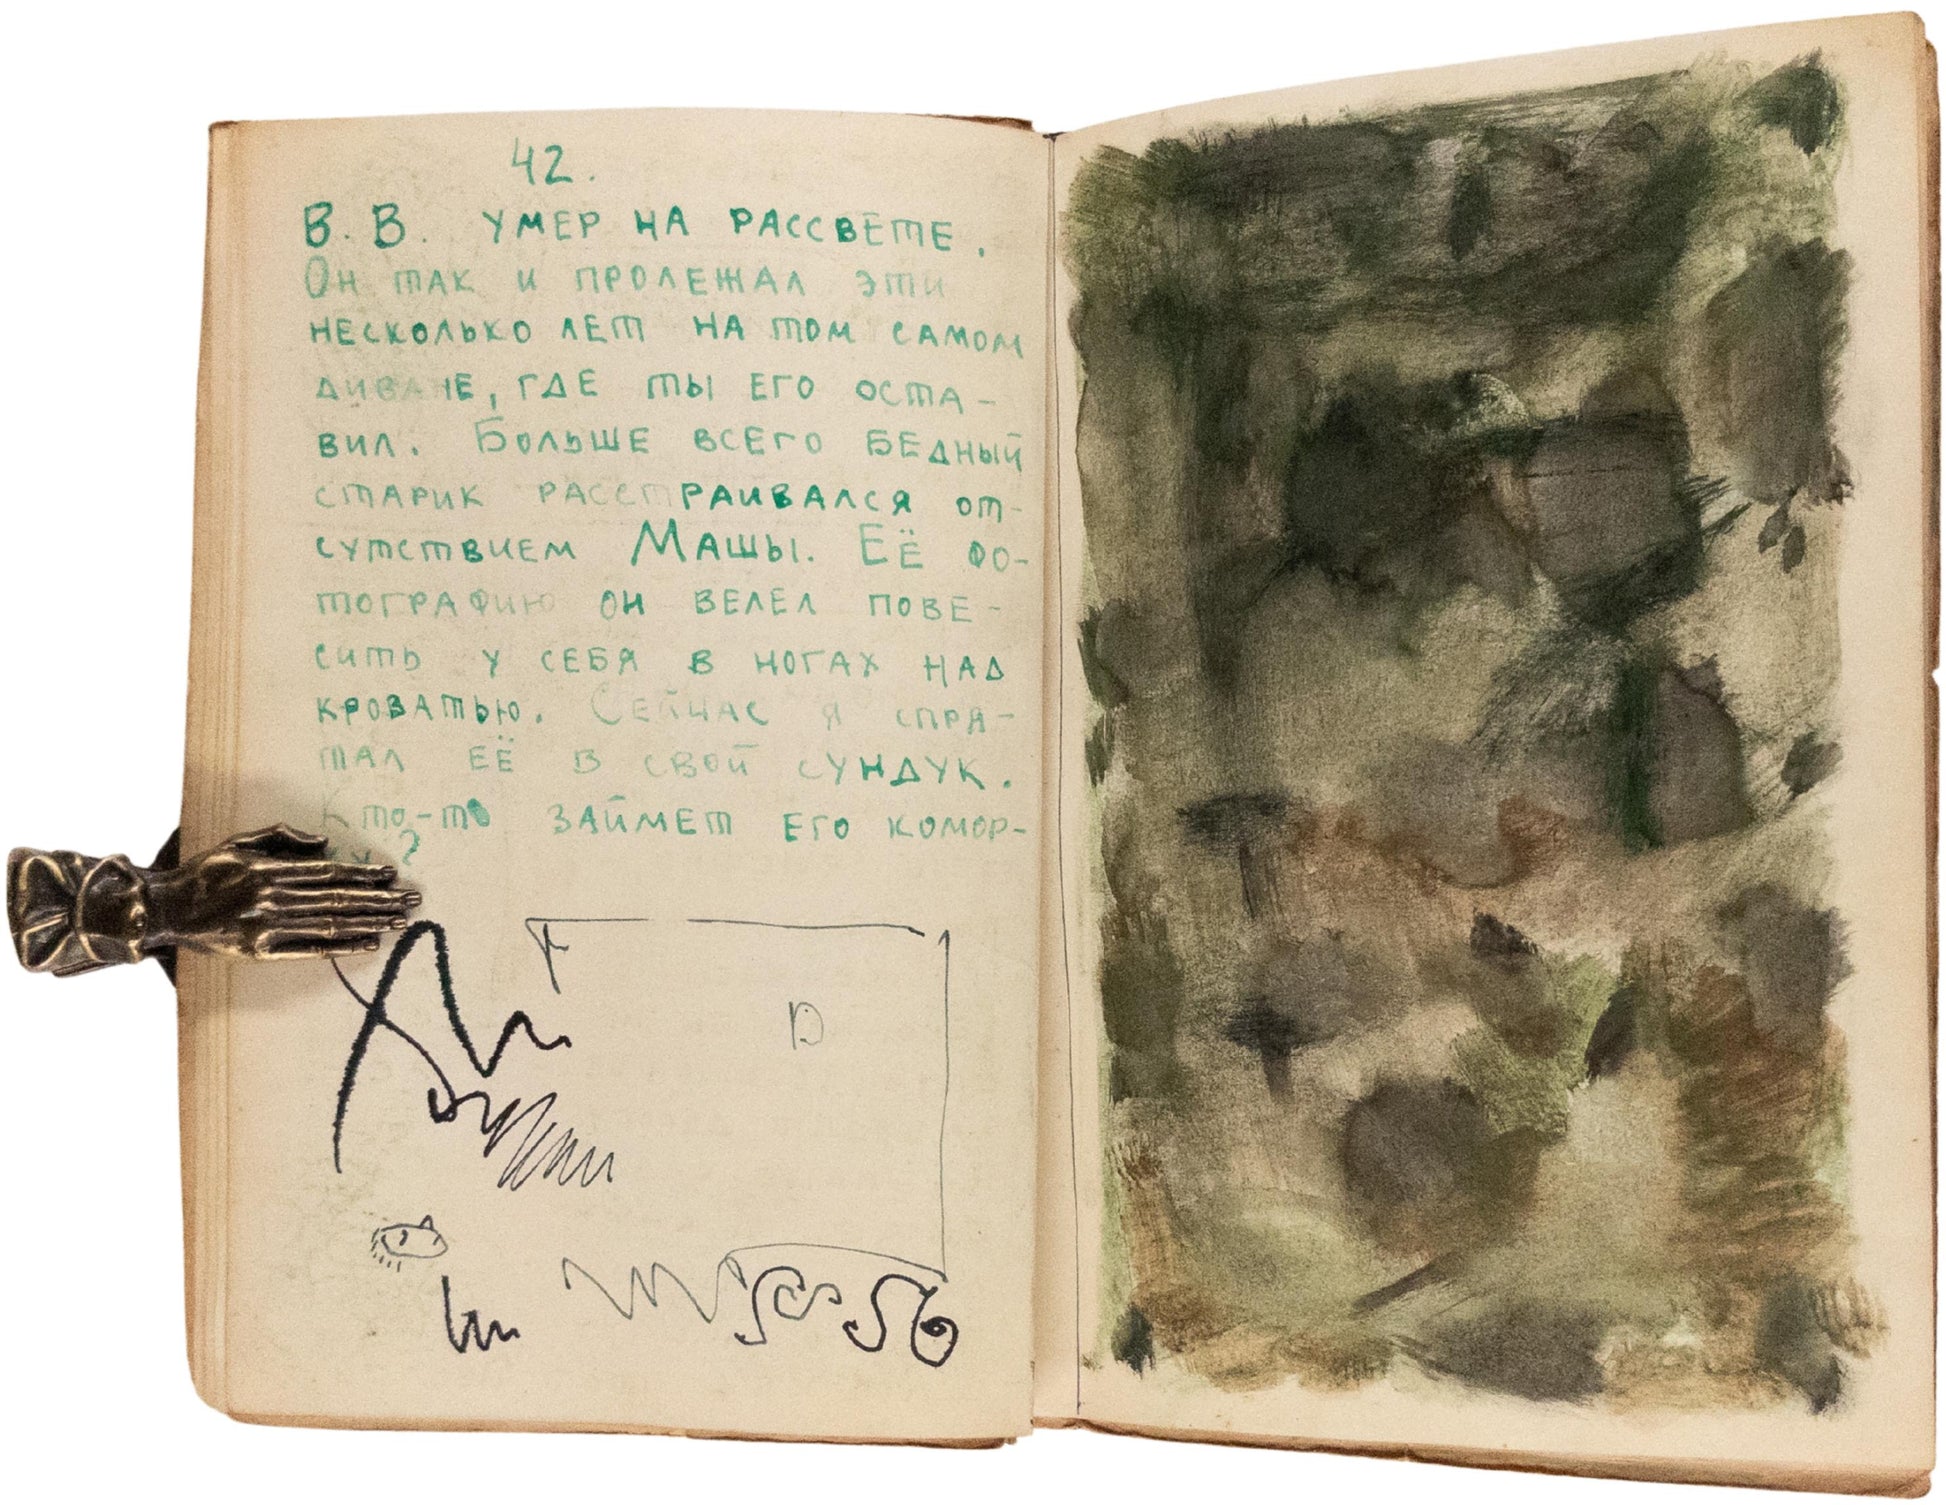 42.
В. В. УМЕР НА РАССВЕТЕ.
Он так и пролежал эти
несколько лет на том самом
диване, где ты его оста-
вил. Больше всего бедный
старик расстраивался от-
сутствием Машы. Её фо-
тографию он велел пове-
сить у себя в ногах над
кроватью. Сейчас я спря-
тал её в свой сундук.
Кто-то займет его комор-
D